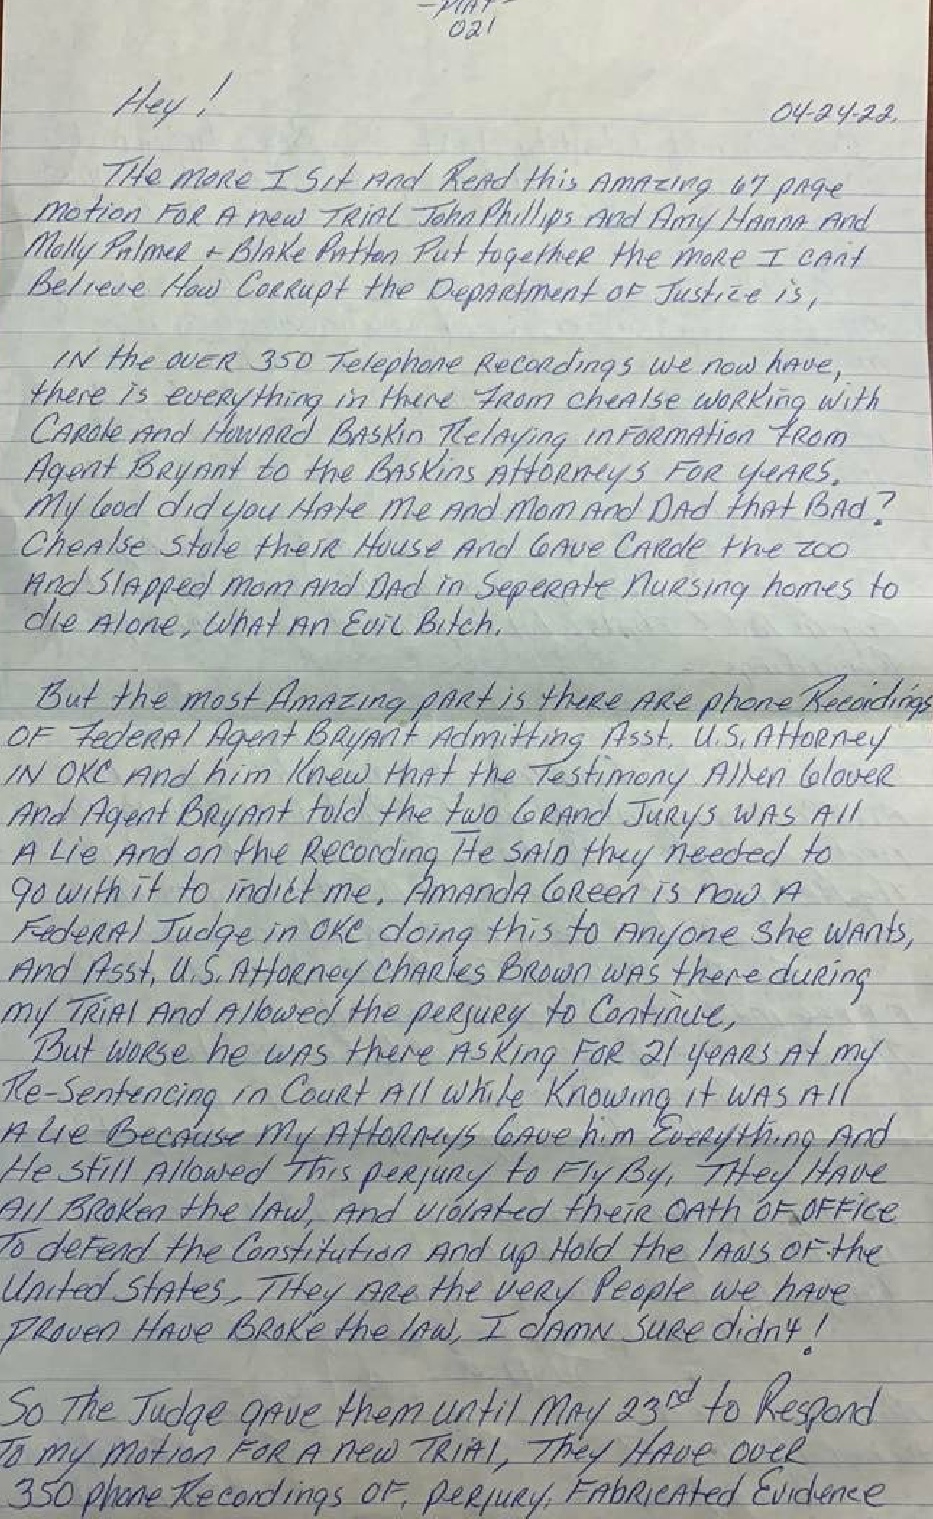 -MAY-
021
Hey!
04-24-22.
THe more I Sit And Read this Amazing 67 page
motion FOR A new TRIAL John Phillips And Amy HANNA And
Molly Palmer + Blake Patton Put together the more I cant
Believe How Corrupt the Department OF Justice is,
IN the over 350 Telephone Recordings we now have,
there is everything in there From chealse working with
CArole And Howard BASKin Relaying inFormation From
Agent Bryant to the BASKins Attorneys FOR years.
My God did you Hate me And Mom And DAD that BAD?
Chealse Stole their House And GAve CArole the zoo
And Slapped mom And DAd in Seperate Nursing homes to
die Alone, What An Evil Bitch.
But the most Amazing part is there Are phone Recordings
OF Federal Agent Bryant Admitting Asst. U.S. Attorney
IN OKC And him Knew that the Testimony Allen Glover
And Agent Bryant told the two Grand Jurys was All
A Lie And on the Recording He said they needed to
go with it to indict me. AmandA Green is now A
Federal Judge in OKC doing this to Anyone She wants,
And Asst. U.S. Attorney Charles Brown was there during
my Trial And Allowed the perjury to Continue,
But worse he was there Asking For 21 years At my
Re-Sentencing in Court All while Knowing it was All
A Lie Because My Attorneys Gave him Everything And
He Still Allowed This perjury to Fly By, They Have
All Broken the law, And violated their OAth OF OFFice
To defend the Constitution And up Hold the laws OF the
United States, They Are the very People we have
proven Have Broke the law, I damn sure didnt!
So The Judge gave them until May 23rd to Respond
To my motion For A new Trial, They Have over
350 phone Recordings OF, perjury, Fabricated Evidence